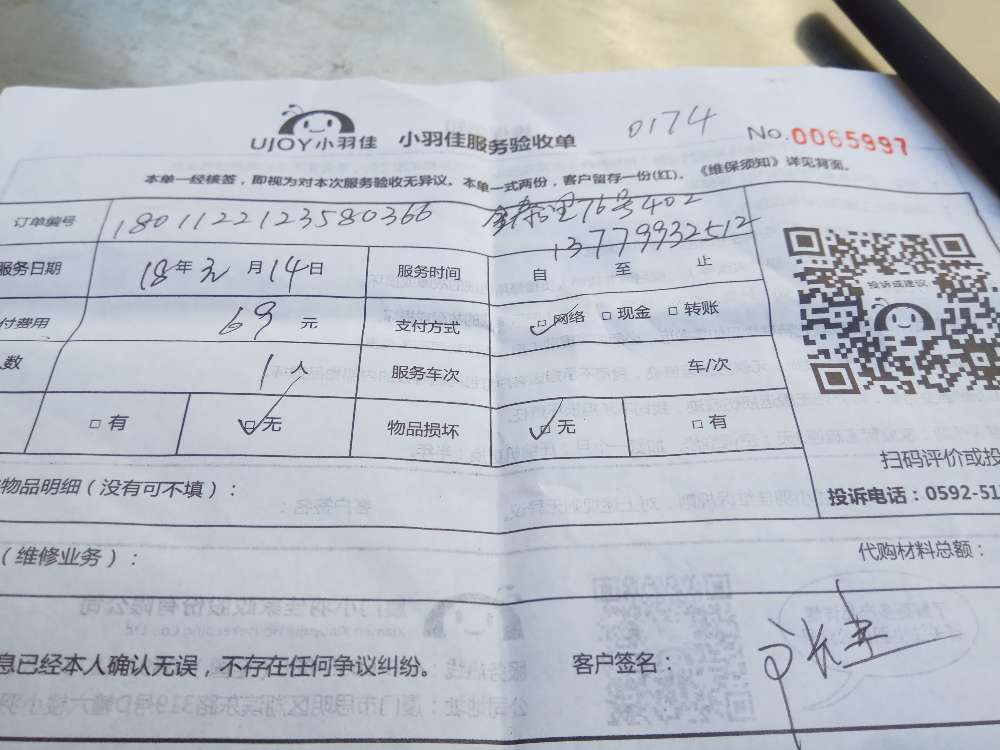 UJOY小羽佳 小羽佳服务验收单 0174 No.0065997
本单一经核签，即视为对本次服务验收无异议。本单一式两份，客户留存一份(红)。《维保须知》详见背面。
订单编号 1801122123580366 76号402
13779932512
服务日期 18年元月14日 服务时间 自 至 止
付费用 69元 支付方式 网络 现金 转账
人数 1人 服务车次 车/次
有 无 物品损坏 无 有
投诉或建议
扫码评价或投
投诉电话：0592-51
物品明细（没有可不填）：
（维修业务）： 代购材料总额：
息已经本人确认无误，不存在任何争议纠纷。 客户签名：